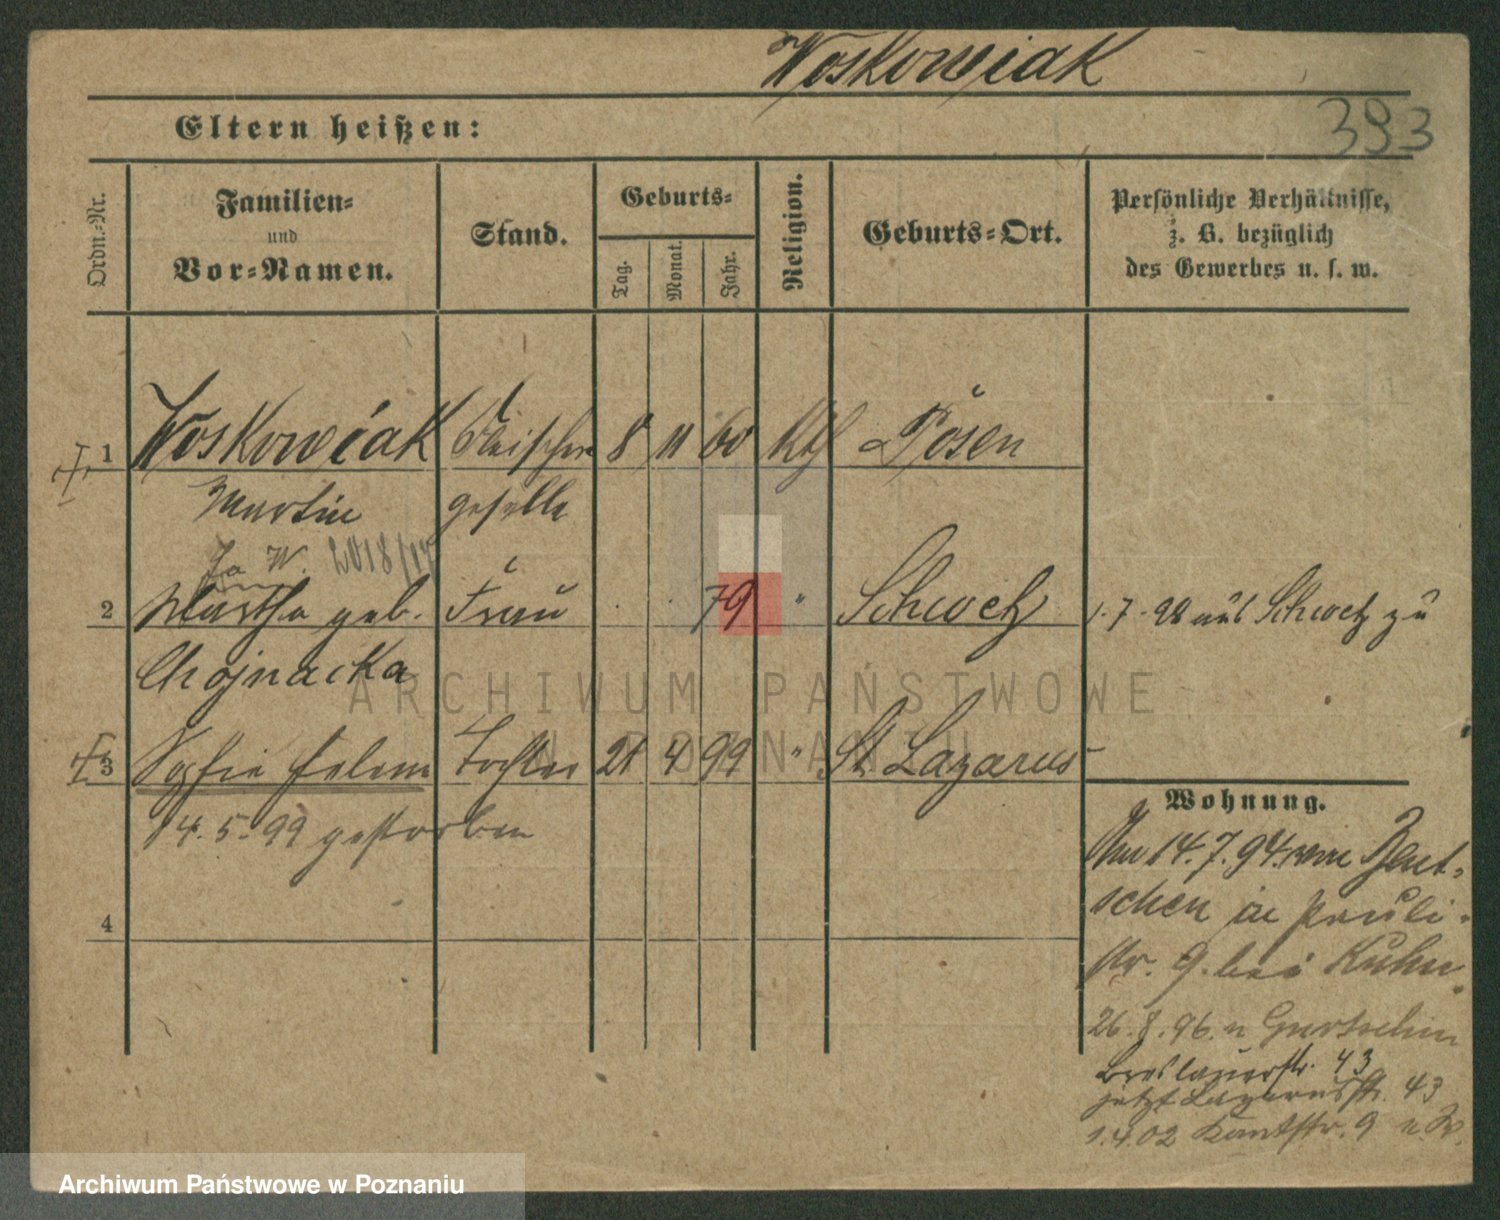 Woskowiak
393
Eltern heißen:
Ordn.-Nr.
Familien-
und
Vor-Namen.
Stand.
Geburts-
Tag.
Monat.
Jahr.
Religion.
Geburts-Ort.
Persönliche Verhältnisse,
z. B. bezüglich
des Gewerbes u. s. w.
1 Woskowiak Fleischer 8 11 60 Kth Posen
Martin geselle
2018/17
2 Martha geb. Frau 79 " Schwetz 1.7.98 aus Schwetz zu
Chojnacka
ARCHIWUM PAŃSTWOWE
W POZNANIU
3 Sophie Helene Tochter 21 4 99 " St. Lazarus
14.5.99 gestorben
4
Wohnung.
Am 14.7.94 von Bent-
schen in Pauli-
str. 9. bei Kuhn.
26.8.96. n Gurtschin
Breslauerstr. 43
jetzt Lazarusstr. 43
1.4.02 Kantstr. 9
Archiwum Państwowe w Poznaniu